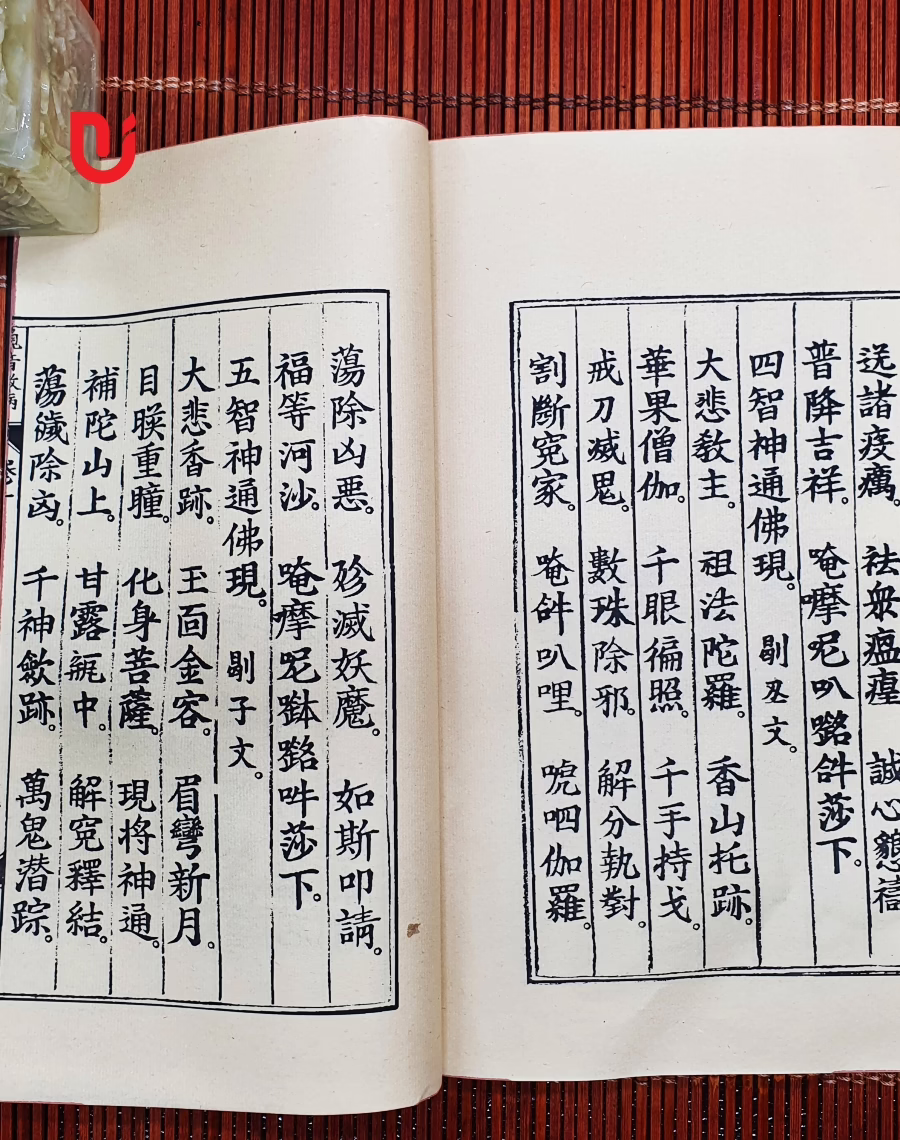 送諸疫癘。祛衆瘟㾮誠心懇禱
普降吉祥。唵嚤呢叭㗉𠹌莎下。
四智神通佛現。剔叕文。
大悲教主。祖法陀羅。香山托跡。
華果僧伽。千眼徧照。千手持戈。
戒刀滅鬼。數珠除邪。解分執對。
割斷寃家。唵𠹌叭哩。唬呬伽羅。
蕩除凶悪。殄滅妖魔。如斯叩請。
福等河沙。唵嚤呢㗉吽莎下。
五智神通佛現。剔子文。
大悲香跡。玉面金容。眉彎新月。
目䀹重瞳。化身菩薩。現将神通。
補陀山上。甘露瓶中。解寃釋結。
蕩穢除凶。千神歛跡。萬鬼潛踪。